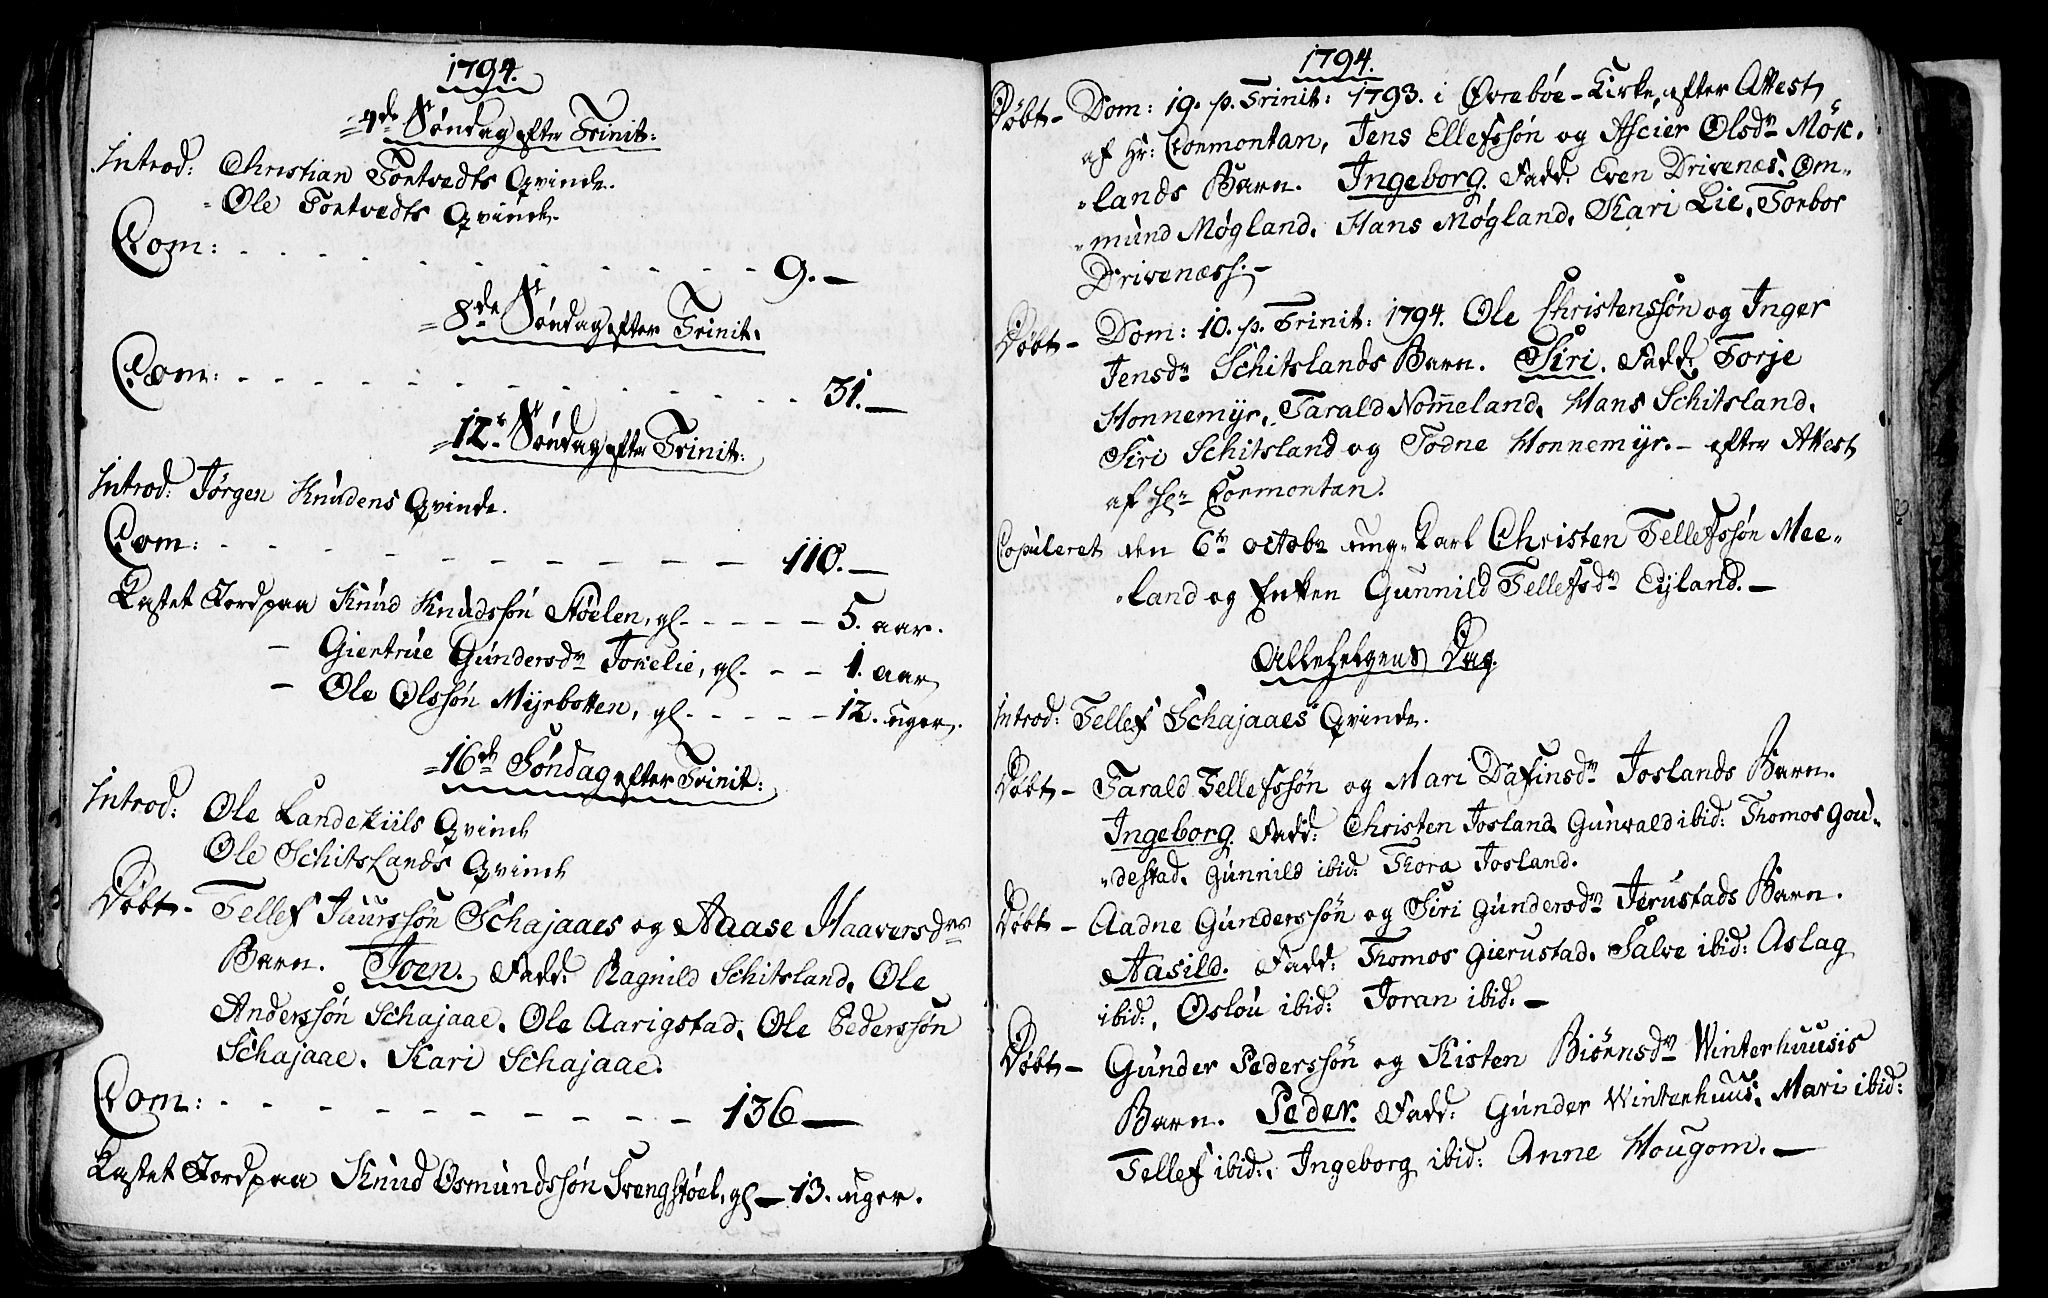 1794.
4de Søndag efter Trinit:
Introd: Christian Tortvedts Qvinde.
Ole Tortvedts Qvinde.
Com: - - - - - - - - - - - 9.—
=8de Søndag efter Trinit:
Com: - - - - - - - - - - - 31.—
=12te Søndag efter Trinit:
Introd: Jørgen Knudens Qvinde.
Com: - - - - - - - - - 110.—
Kastet Jord paa Knud Knudssøn Støelen, gl. - - - - 5. aar.
— Giertrue Gundersdr Jorelie, gl. - - - 1. aar
— Ole Olssøn Myrbotten, gl. - - - - - 12. uger.
=16de Søndag efter Trinit:
Introd: Ole Landekiils Qvinde
Ole Schitslands Qvinde
Døbt - Tellef Juurssøn Schajaaes og Aaase Haaversdrs
Barn. Joen. Fadd: Ragnild Schitsland, Ole
Anderssøn Schajaae, Ole Aarigstad, Ole Pederssøn
Schajaae. Kari Schajaae.
Com: - - - - - - - - - - 136—
Kastet Jord paa Knud Osmundssøn Svengstøel, gl — 13. uger.
1794.
Døbt - Dom: 19. p. Trinit: 1793. i Øvrebøe-Kirke, efter Attest
af Hr: Cormontan, Jens Ellefssøn og Ascier Olsdr Møk-
"lands Barn. Ingeborg. Fadd: Even Drivenæs. Om-
"mund Møgland, Hans Møgland, Kari Lie, Torbor
Drivenæss:—
Døbt - Dom: 10. p. Trinit: 1794. Ole Christenssøn og Inger
Jensdr Schitslands Barn. Siri. Fadd: Torje
Honnemyr, Tarald Nom̄eland, Hans Schitsland,
Siri Schitsland og Todne Honnemyr. - efter Attest
af Hr Cormontan.
Copuleret den 6te octobr ung-Karl Christen Tellefssøn Mee-
"land og Enken Gunnild Tellefsdr Eyland.—
Allehelgens Dag.
Introd: Tellef Schajaaes Qvinde.
Døbt - Tarald Tellefssøn og Mari Dafinsdr Joslands Barn.
Ingeborg. Fadd: Christen Josland Gunvald ibid: Thomos Gou-
"destad, Gunnild ibid: Thora Josland.
Døbt - Aadne Gunderssøn og Siri Gundersdr Jerustads Barn.
Aasild. Fadd: Thomos Gierustad, Salve ibid: Aslag
ibid:, Oslou ibid: Joran ibid:—
Døbt - Gunder Pederssøn og Kisten Biørnsdr Winterhuusiis
Barn. Peder. Fadd: Gunder Winterhuus, Mari ibid:
Tellef ibid:, Ingeborg ibid: Anne Hougom.—